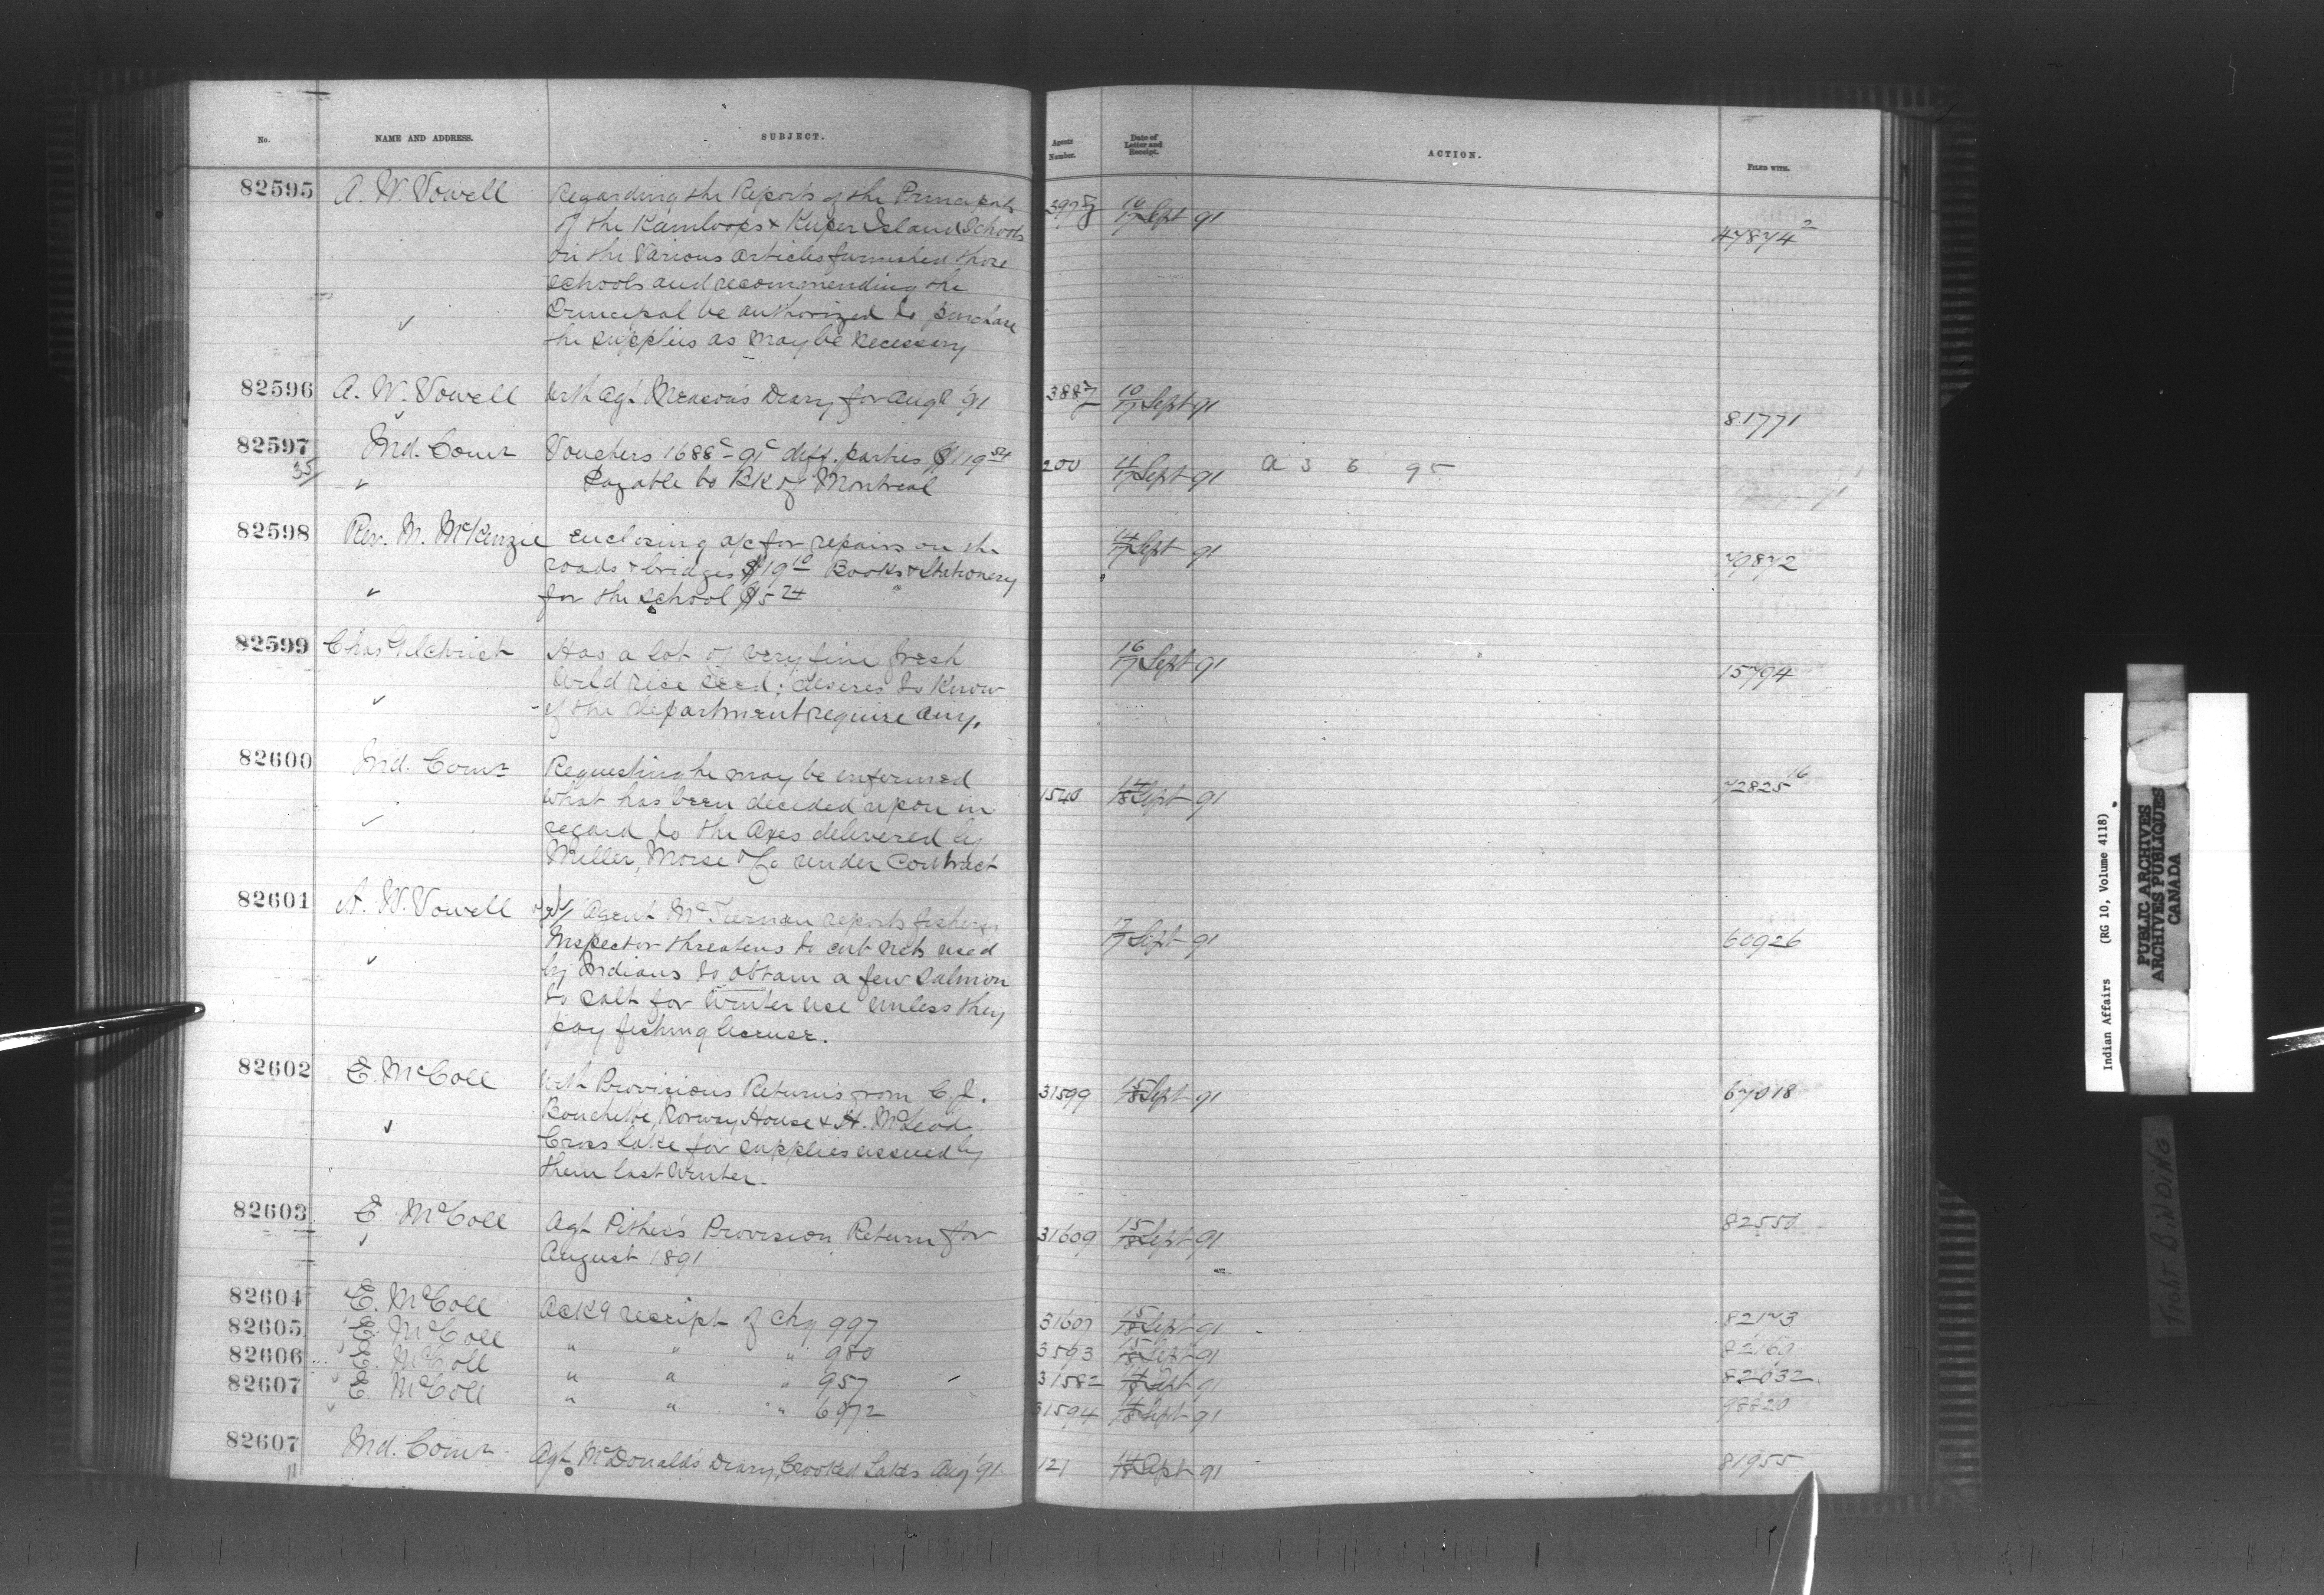 No. NAME AND ADDRESS. SUBJECT. Agents Number. Date of Letter and Receipt. ACTION. FILED WITH.
82595 A. W. Vowell Regarding the Reports of the Principals 397 10/17 Sept 91 47874²
of the Kamloops & Kuper Island Schools
on the Various articles furnished those
schools and recommending the
Principal be authorized to purchase
the supplies as may be necessary
82596 A. W. Vowell With Agt Meason's Diary for Augt '91 388 10/17 Sept 91 81771
82597 Ind. Comr Vouchers 1688c - 91c diff. parties $119 54 200 4/17 Sept 91 a 3 6 95
35/ Payable to Bk of Montreal
82598 Rev. M. McKenzie Enclosing a/c for repairs on the 14/17 Sept 91 79872
roads & bridges $19 10 Books & Stationery
for the school $5 24
82599 Chas Gilchrist Has a lot of very fine fresh 16/17 Sept 91 15794
Wild rice seed; desires to know
if the department require any.
82600 Ind. Comr Requesting he may be informed
what has been decided upon in 1540 14/18 Sept 91 72825 16
regard to the Axes delivered by
Miller, Morse & Co under Contract
82601 A. W. Vowell Agent McTiernan reports fishery
Inspector threatens to cut nets used 17/17 Sept 91 60926
by Indians to obtain a few salmon
to salt for winter use unless they
pay fishing license.
82602 E. McColl With Provisions Returns from C. J. 31599 15/18 Sept 91 67018
Bouchette, Norway House & H. McLeod
Cross Lake for supplies issued by
them last Winter.
82603 E. McColl Agt Pither's Provision Return for 31609 15/18 Sept 91 82550
August 1891
82604 E. McColl Ackg receipt of chq 997 31607 15/18 Sept 91 82173
82605 E. McColl " " " 980 3593 15/18 Sept 91 82160
82606 E. McColl " " " 957 31582 14/18 Sept 91 82032
82607 E. McColl " " " 6972 31594 14/18 Sept 91
82607 Ind. Comr Agt McDonald's Diary, Crooked Lakes Aug '91 121 14/18 Sept 91 81955
Indian Affairs (RG 10, Volume 4118)
PUBLIC ARCHIVES
ARCHIVES PUBLIQUES
CANADA
TIGHT BINDING